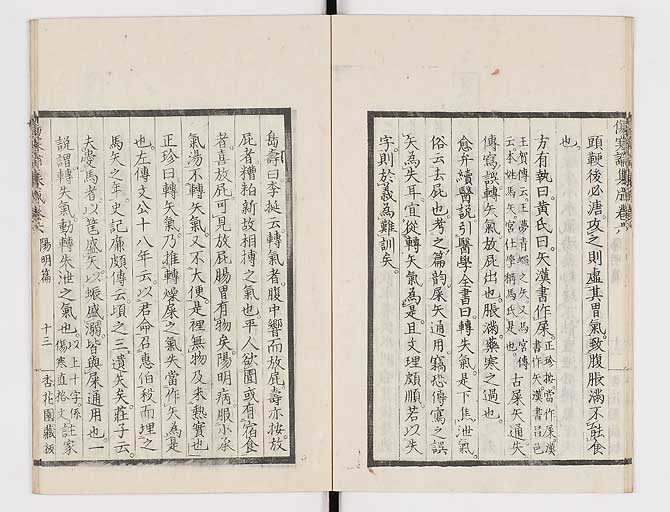 頭鞕後必溏攻之則虛其胃氣致腹脹滿不能食
也
方有執曰黃氏曰矢漢書作屎正珍按當作屎漢書作矢漢書昌邑
王賀傳云王夢青蠅之矢又馬宮傳云本姓馬矢宮仕學稱馬氏是也古屎矢通失
傳寫誤轉矢氣故屁出也脹滿藥寒之過也
愈弁續醫說引醫學全書曰轉失氣是下焦泄氣
俗云去屁也考之篇韵屎矢通用竊恐傳寫之誤
矢為失耳宜從轉矢氣為是且文理頗順若以失
字則於義為難訓矣
岛壽曰李梴云轉氣者腹中響而放屁壽亦按放
屁者糟粕新故相搏之氣也平人欲圊或有宿食
者喜放屁可見放屁腸胃有物矣陽明病服小承
氣湯不轉矢氣又不大便是裡無物及未熱實也
正珍曰轉矢氣乃推轉燥屎之氣失當作矢為是
也左傳文公十八年云以君命召惠伯殺而埋之
馬矢之年史記廉頗傳云頃之三遺矢矣莊子云
夫愛馬者以筐盛矢以蜄盛溺皆與屎通用也一
說謂轉失氣動轉失泄之氣也以上十字係傷寒直格文註家
陽明篇
十三
杏花園藏板